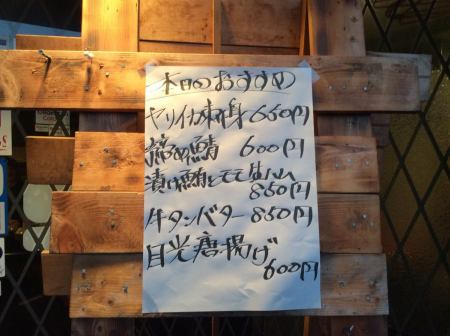 本日のおすすめ
ヤリイカ刺身 650円
締め鯖 600円
漬け鮪と
850円
牛タンバター 850円
目光唐揚げ
600円